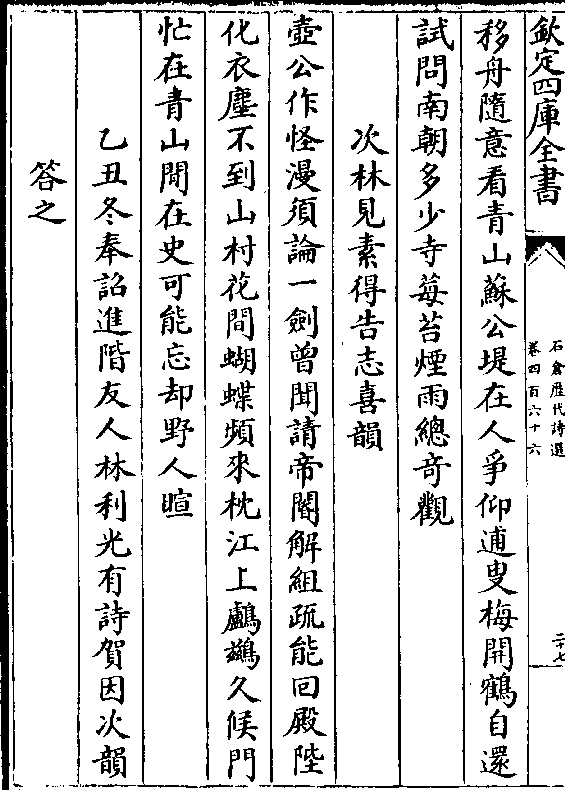 欽定四庫全書
石倉歴代詩選
卷四百六十六
二十七
移舟隨意看青山蘇公堤在人爭仰逋叟梅開鶴自還
試問南朝多少寺莓苔煙雨總竒觀
次林見素得告志喜韻
壺公作怪漫須論一劍曾聞請帝閽解組疏能回殿陛
化衣塵不到山村花間蝴蝶頻來枕江上鸕鷀久候門
忙在青山閒在史可能忘却野人暄
乙丑冬奉詔進階友人林利光有詩賀因次韻
答之